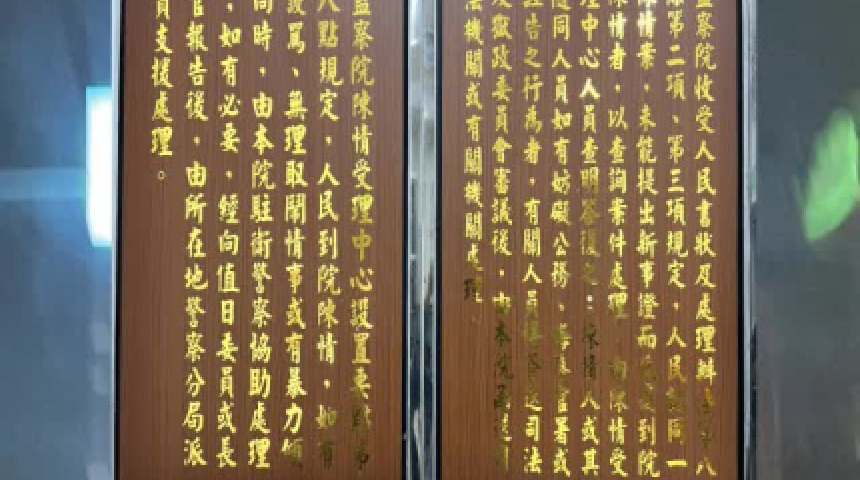 監察院收受人民書狀及處理辦法第八
條第二項、第三項規定，人民就同一
陳情案，未能提出新事證而 到院
陳情者，以查詢案件處理，由陳情受
理中心人員查明答復之；陳情人或其
隨同人員如有妨礙公務、 官署或
誣告之行為者，有關人員得簽送司法
及獄政委員會審議後，由本院函送司
法機關或有關機關處理。
監察院陳情受理中心設置要點第
八點規定，人民到院陳情，如有
謾罵、無理取鬧情事或有暴力傾
向時，由本院駐衛警察協助處理
，如有必要，經向值日委員或長
官報告後，由所在地警察分局派
員支援處理。